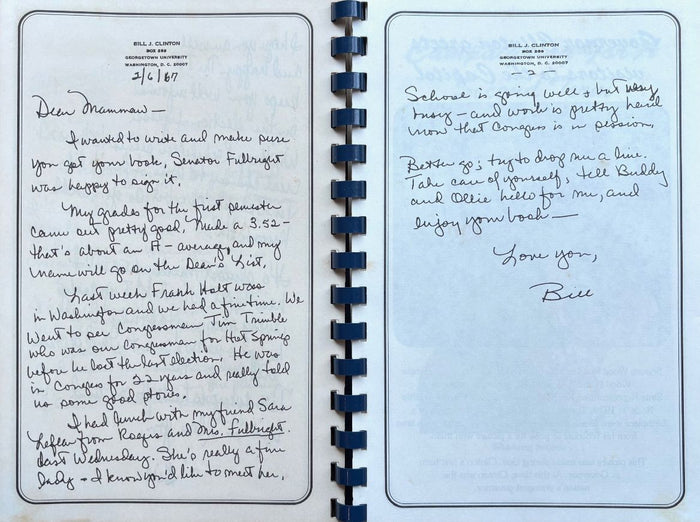 BILL J. CLINTON
BOX 288
GEORGETOWN UNIVERSITY
WASHINGTON, D. C. 20007
2/6/67
Dear Mammaw —
I wanted to write and make sure
you got your book. Senator Fulbright
was happy to sign it.
My grades for the first semester
came out pretty good. Made a 3.52 —
that's about an A- average, and my
name will go on the Dean's List.
Last week Frank Holt was
in Washington and we had a fine time. We
went to see Congressman Jim Trimble
who was our Congressman for Hot Springs
before he lost the last election. He was
in Congress for 22 years and really told
us some good stories.
I had lunch with my friend Sara
from Rogers and Mrs. Fulbright
last Wednesday. She's really a fine
lady + I know you'd like to meet her.
BILL J. CLINTON
BOX 288
GEORGETOWN UNIVERSITY
WASHINGTON, D. C. 20007
— 2 —
School is going well + but very
busy — and work is pretty hard
now that Congress is in session.
Better go; try to drop me a line.
Take care of yourself, tell Buddy
and Ollie hello for me, and
enjoy your book —
Love you,
Bill